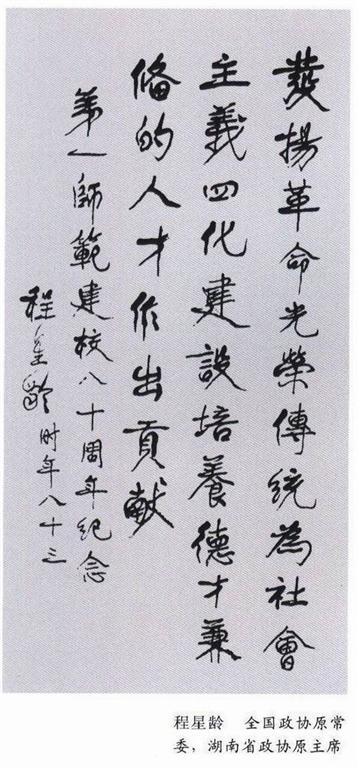 發揚革命光榮傳統為社會
主義四化建設培養德才兼
俻的人才作出貢献
第一師範建校八十周年纪念
程星齡 时年八十三
程星龄　全国政协原常
委，湖南省政协原主席